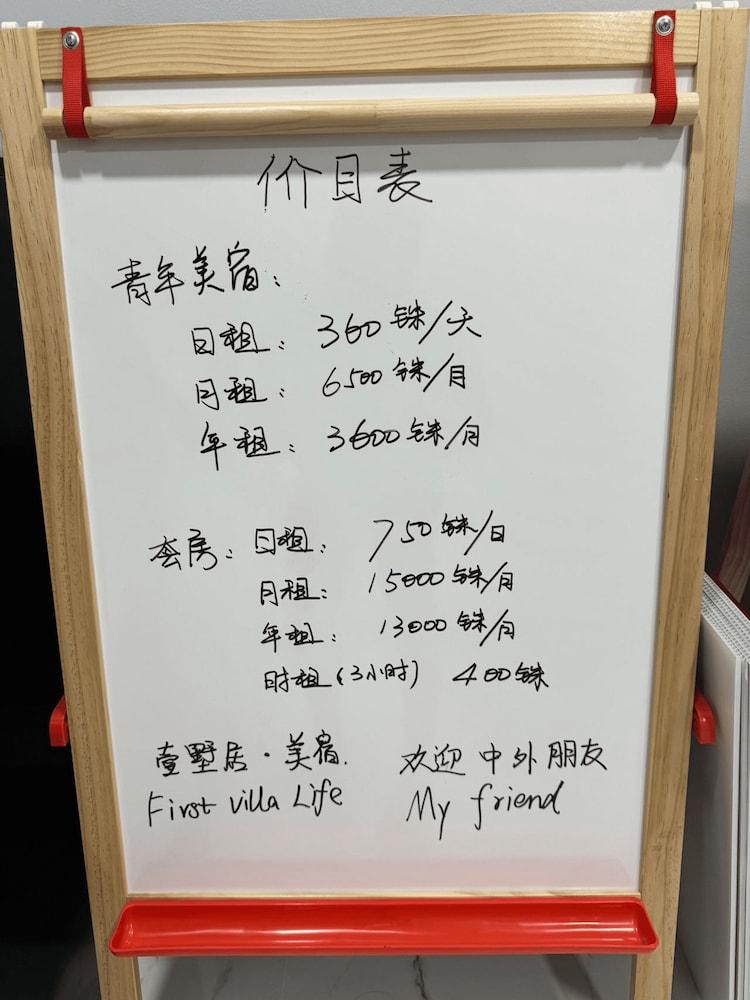 价目表
青年美宿：
日租：360铢/天
月租：6500铢/月
年租：3600铢/月
套房：日租：750铢/日
月租：15000铢/月
年租：13000铢/月
时租（3小时）400铢
壹墅居·美宿. 欢迎中外朋友
First villa Life My friend